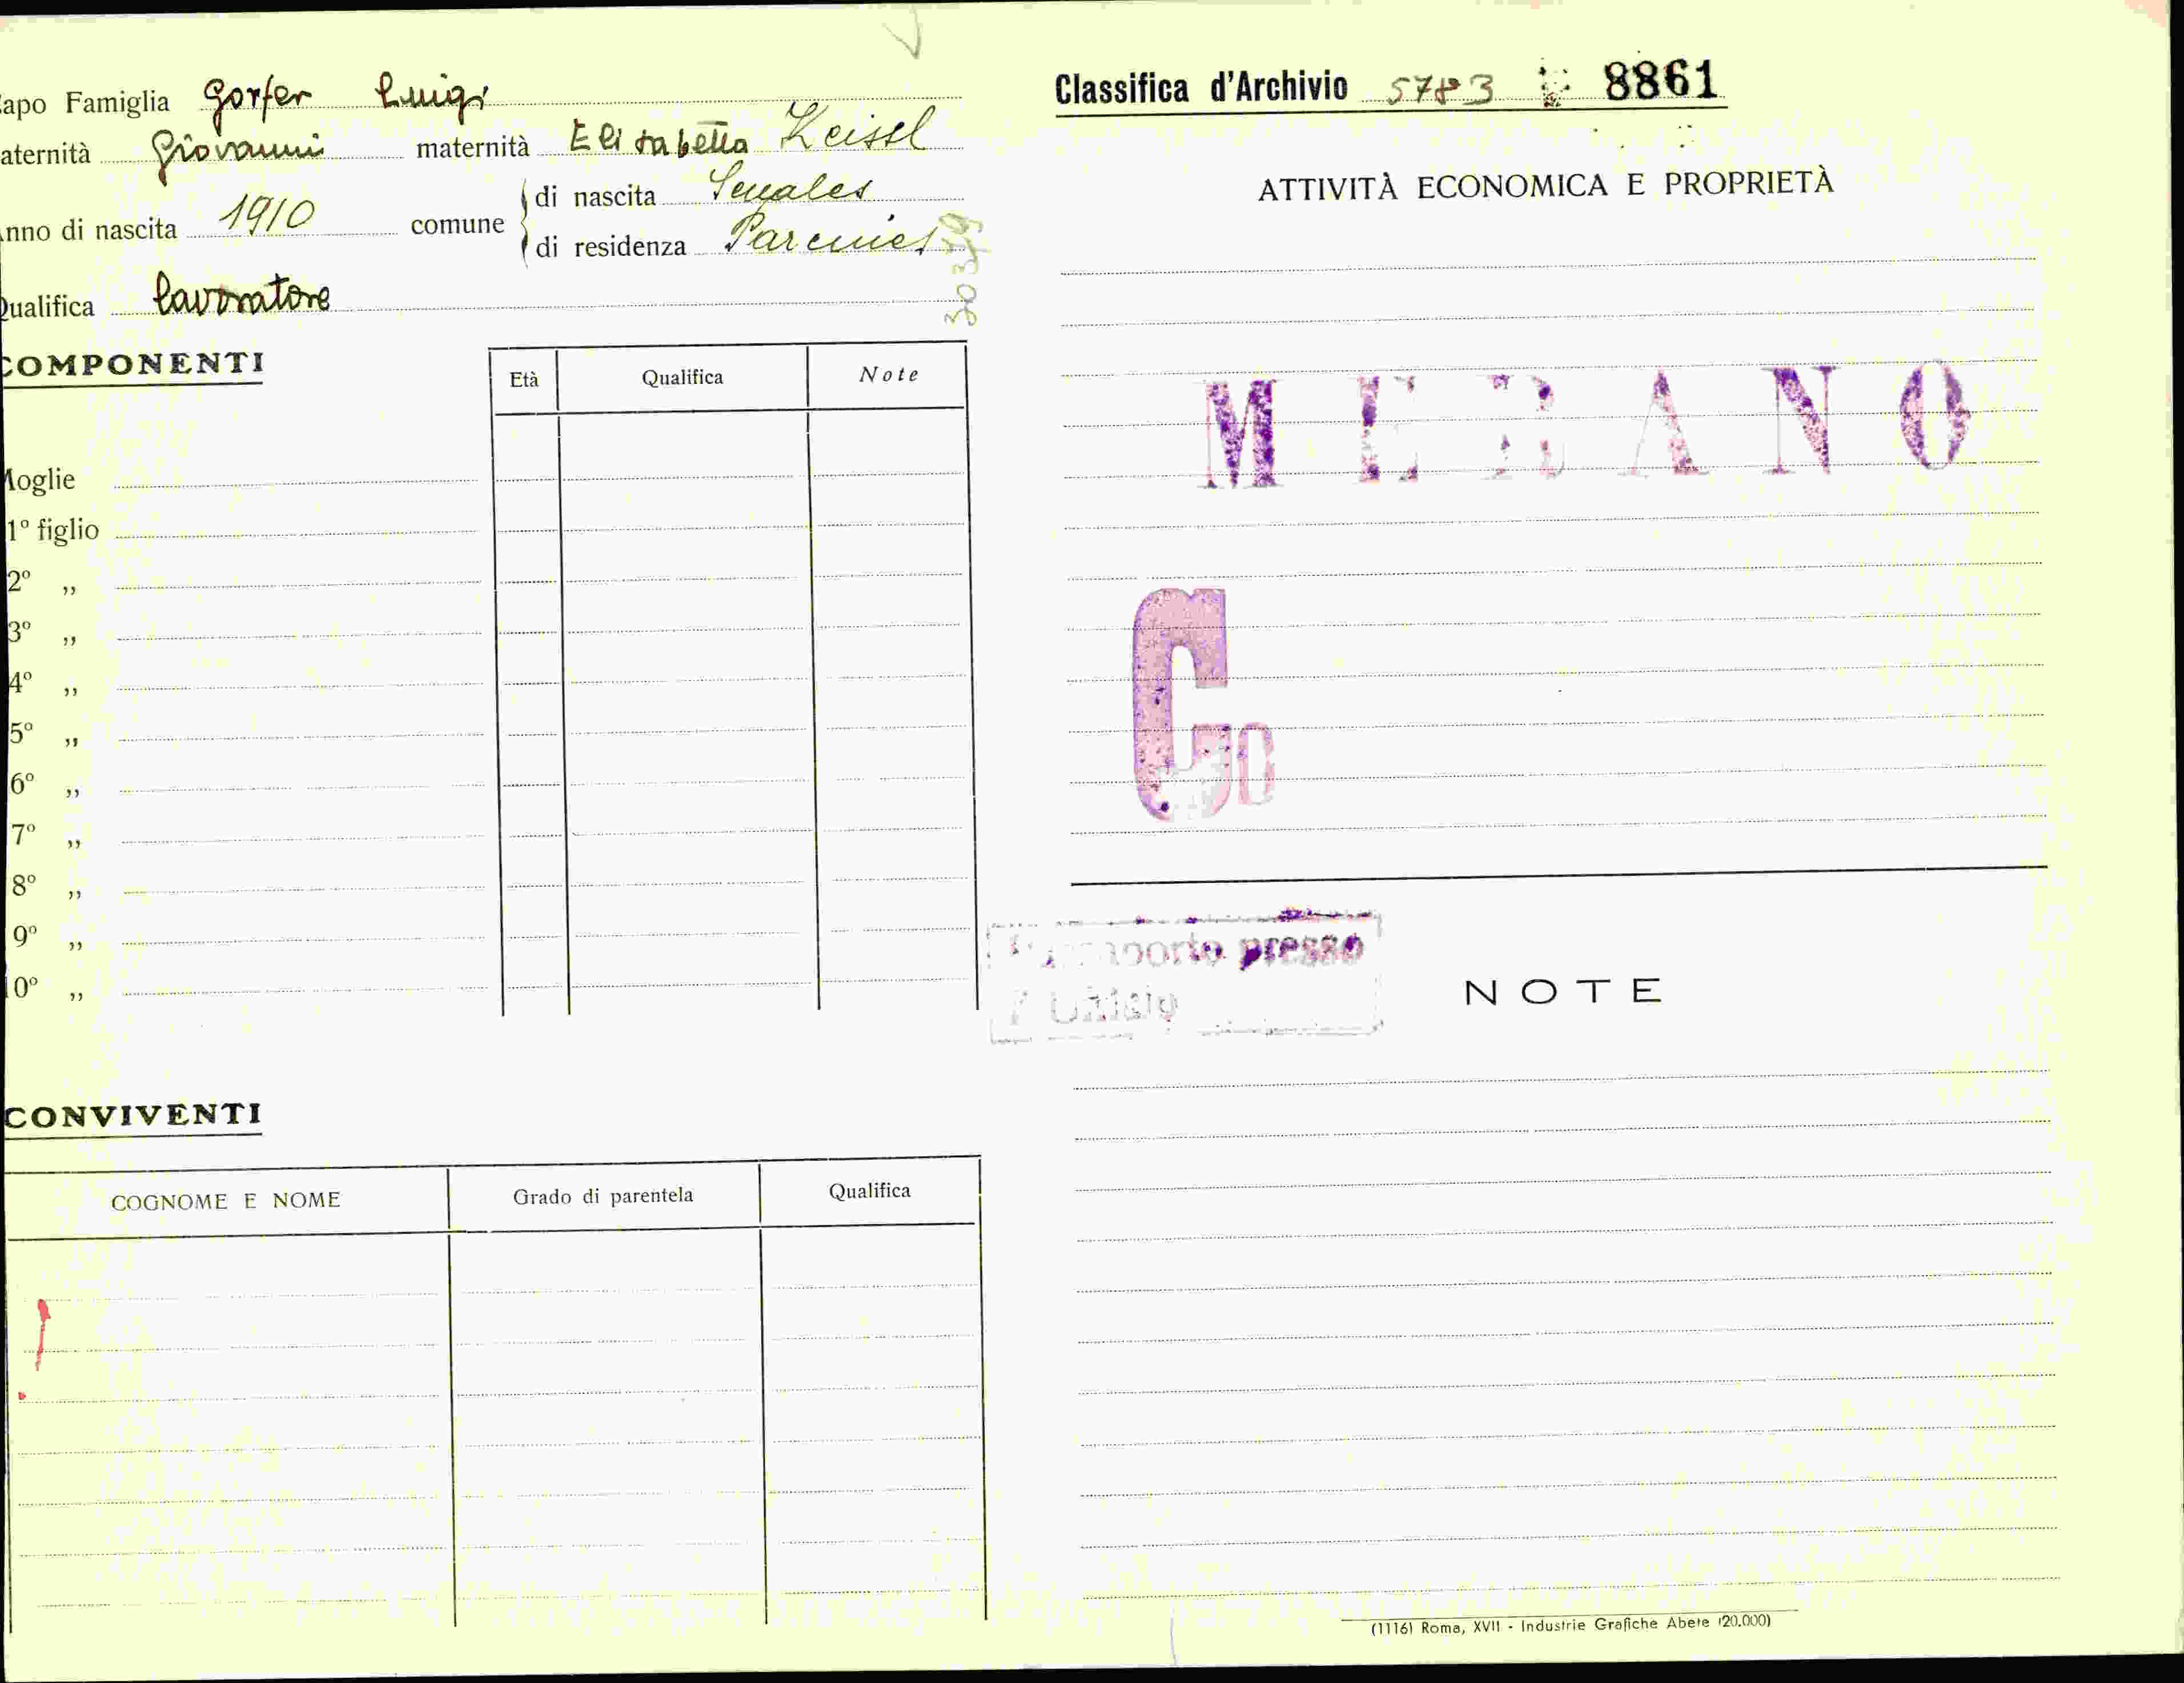 apo Famiglia Gorfer Luigi
aternità Giovanni maternità Elisabetta Zeisel
nno di nascita 1910 comune di nascita Senales
di residenza Parcines
Qualifica lavoratore
COMPONENTI
Età Qualifica Note
Moglie
1º figlio
2º „
3º „
4º „
5º „
6º „
7º „
8º „
9º „
10º „
CONVIVENTI
COGNOME E NOME Grado di parentela Qualifica
Classifica d'Archivio 5783 8861
ATTIVITÀ ECONOMICA E PROPRIETÀ
MERANO
G
presso
NOTE
(1116) Roma, XVII - Industrie Grafiche Abete (20.000)